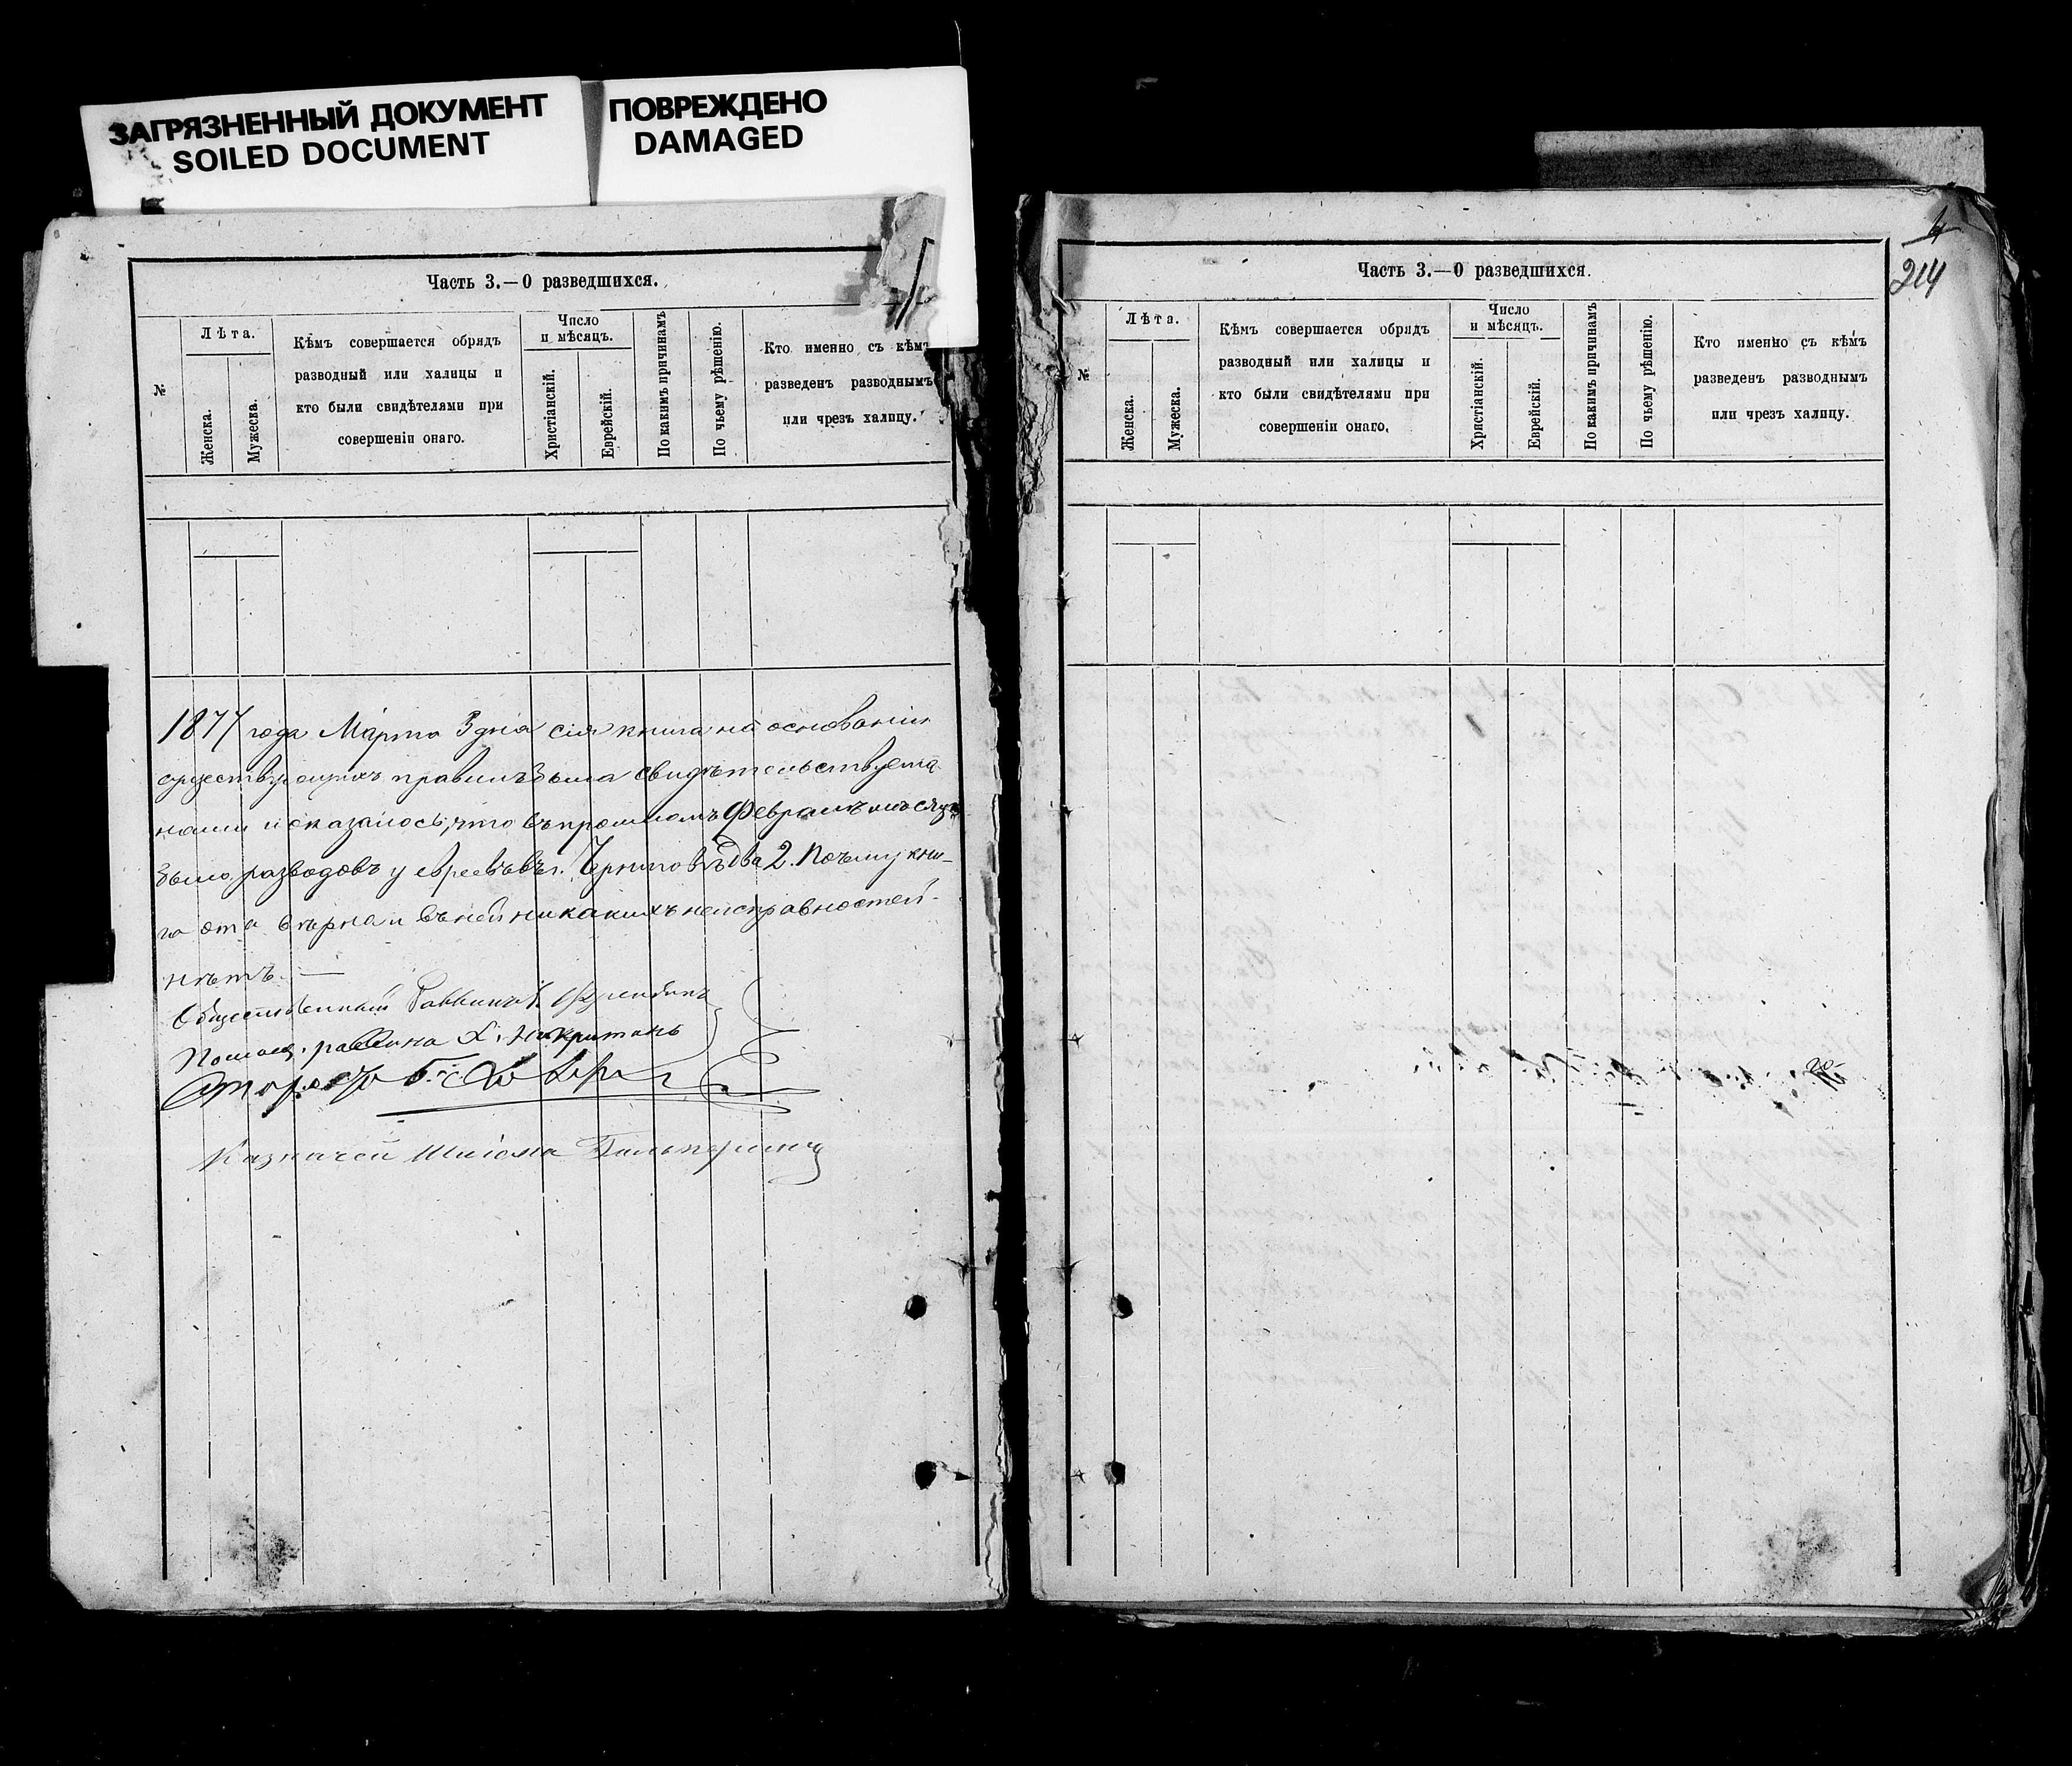 ЗАГРЯЗНЕННЫЙ ДОКУМЕНТ
SOILED DOCUMENT
ПОВРЕЖДЕНО
DAMAGED
Часть 3.—О разведшихся.
№
Лѣта.
Женска.
Мужеска.
Кѣмъ совершается обрядъ
разводный или халицы и
кто были свидѣтелями при
совершеніи онаго.
Число
и мѣсяцъ.
Христіанскій.
Еврейскій.
По какимъ причинамъ
По чьему рѣшенію.
Кто именно съ кѣмъ
разведенъ разводнымъ
или чрезъ халицу.
1877 года Марта 3 дня сія книга на основаніи
существующихъ правилъ была свидѣтельствуема
нами и оказалось, что въ прошломъ Февралѣ мѣсяцѣ
было разводовъ у евреевъ въ г. Черниговѣ два 2. Почему кни-
га эта вѣрна и въ ней никакихъ неисправностей
нѣтъ.
Общественный Раввинъ
Помощ. раввина Х.
Староста
Казначей Шлiома Гальперинъ
4
214
Часть 3.—О разведшихся.
№
Лѣта.
Женска.
Мужеска.
Кѣмъ совершается обрядъ
разводный или халицы и
кто были свидѣтелями при
совершеніи онаго.
Число
и мѣсяцъ.
Христіанскій.
Еврейскій.
По какимъ причинамъ
По чьему рѣшенію.
Кто именно съ кѣмъ
разведенъ разводнымъ
или чрезъ халицу.
го-